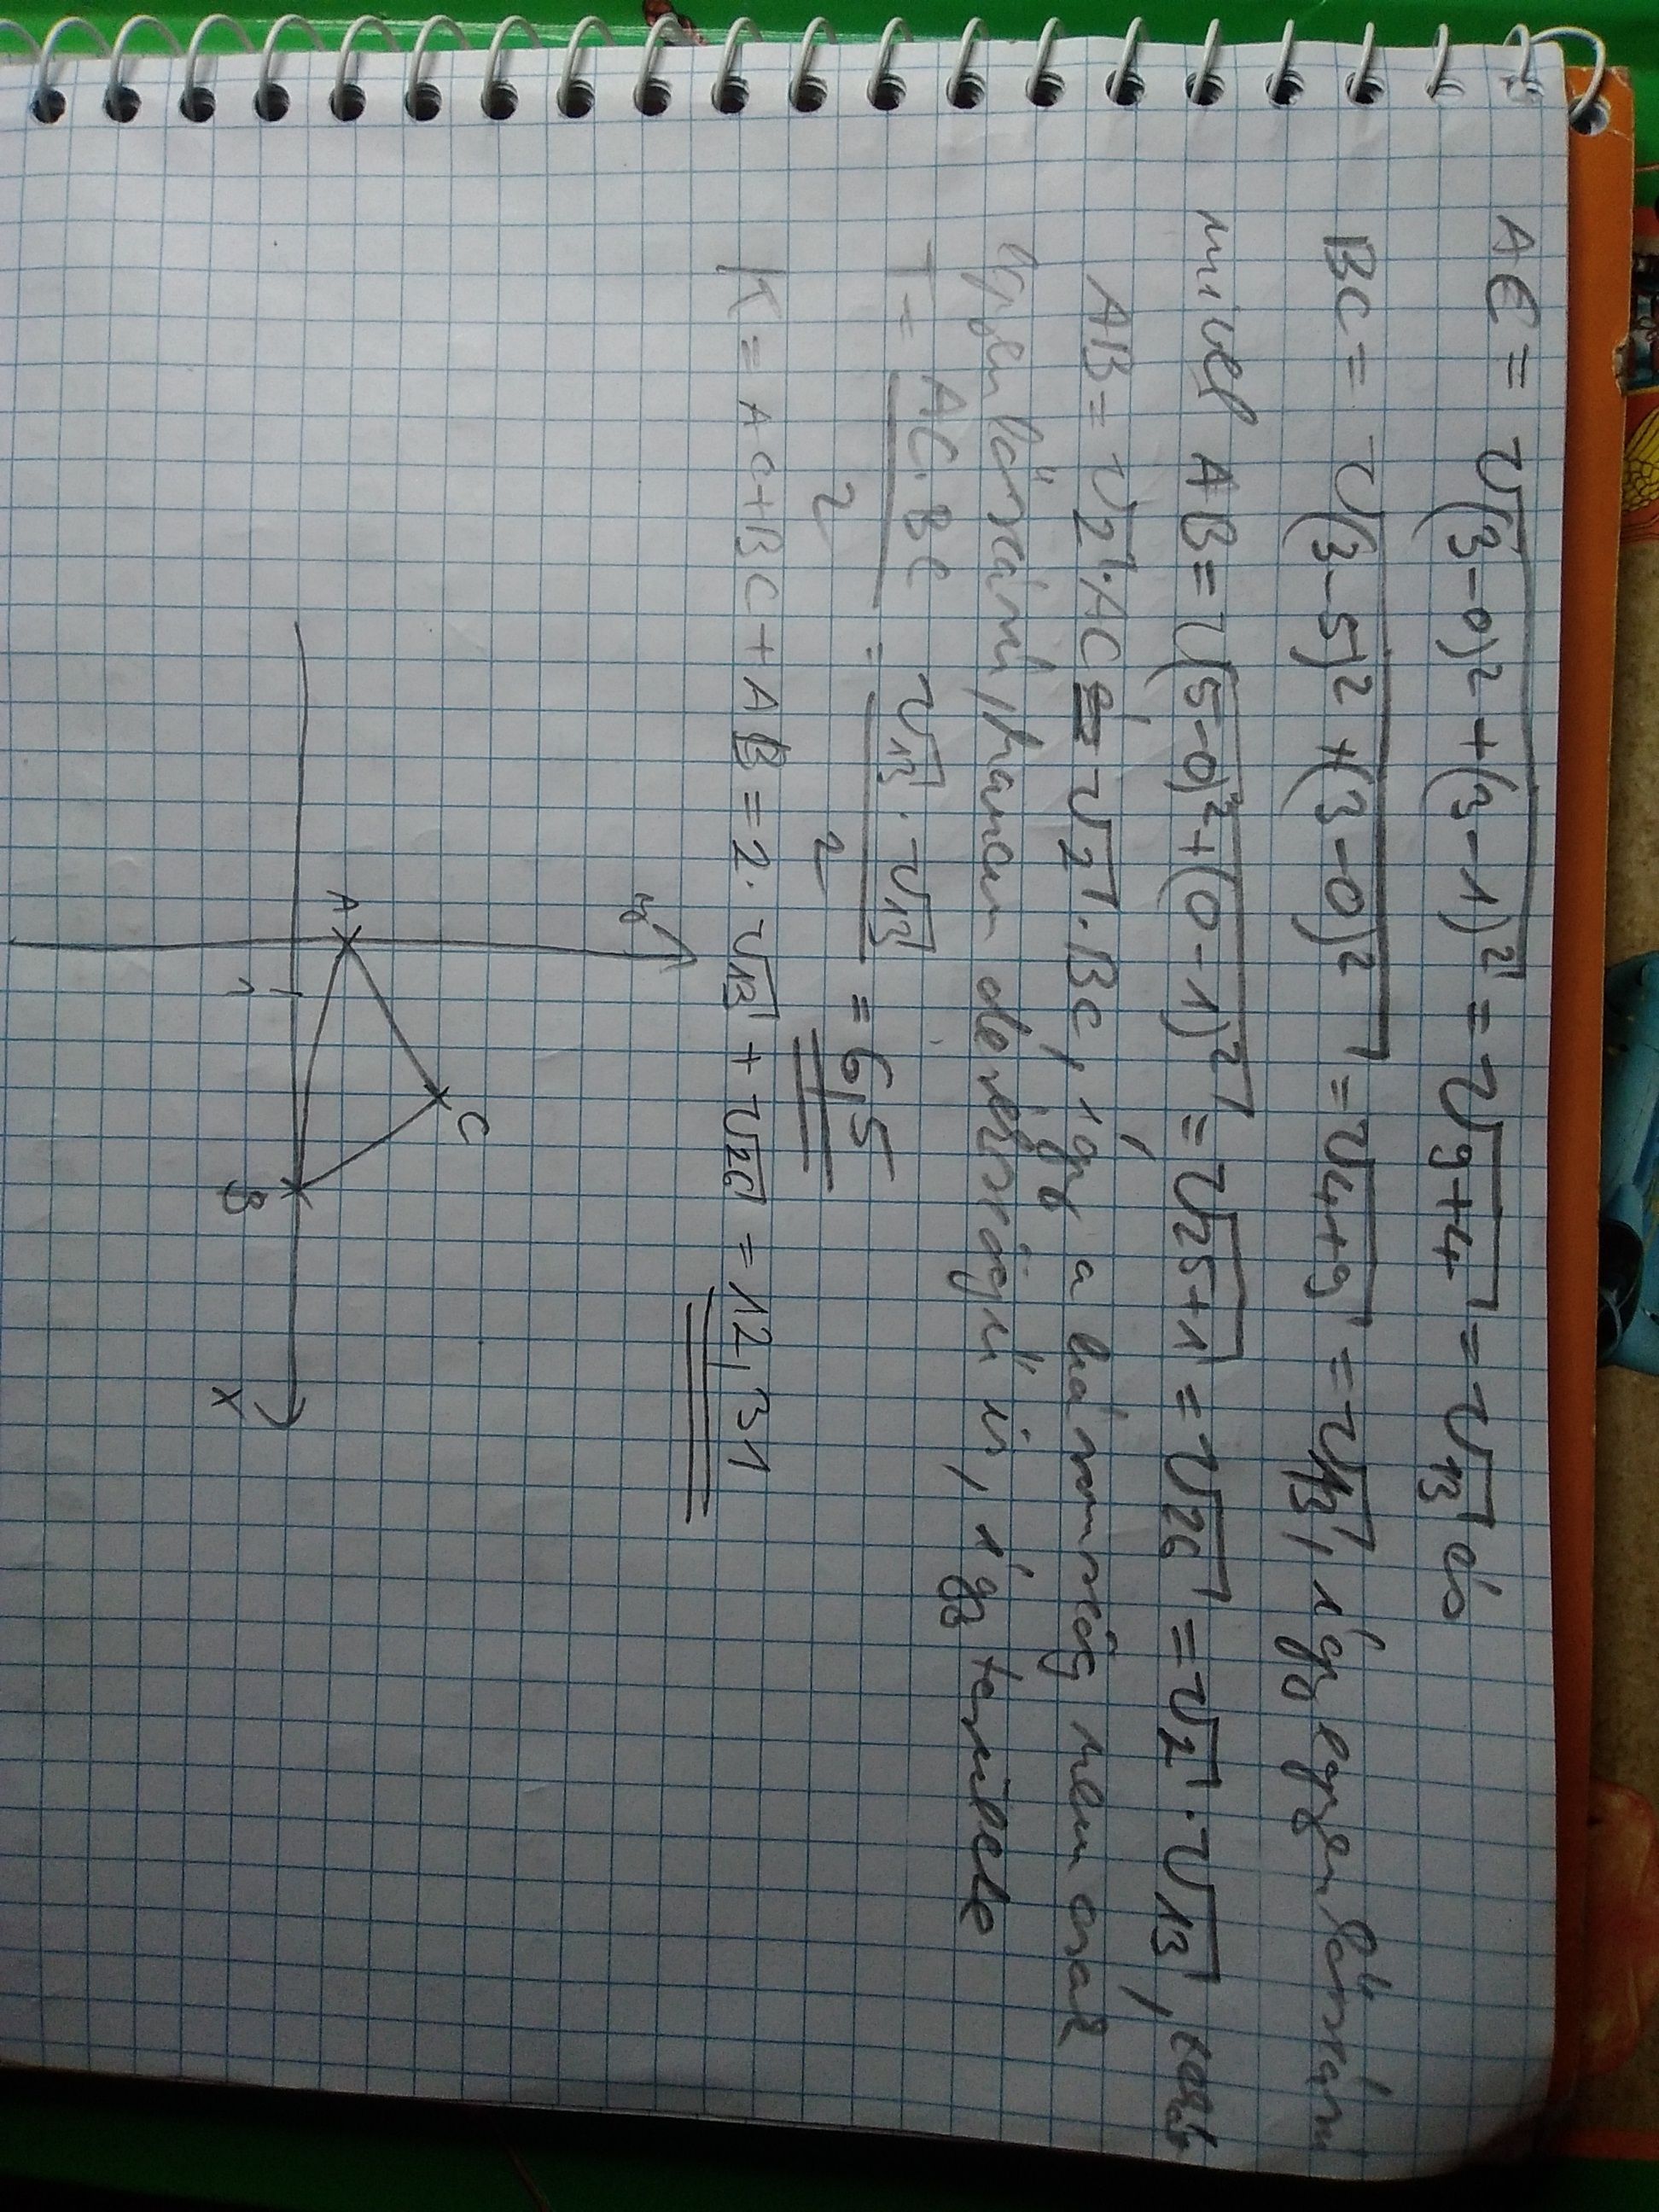 AC = √(3-0)² + (3-1)² = √9+4 = √13 és
BC = √(3-5)² + (3-0)² = √4+9 = √13, így egyenlőszárú
mivel AB = √(5-0)² + (0-1)² = √25+1 = √26 = √2 · √13, tehát
AB = √2 · AC = √2 · BC, így a háromszög nem csak
egyenlőszárú, hanem derékszögű is, így területe
T = AC · BC / 2 = √13 · √13 / 2 = 6,5
K = AC + BC + AB = 2 · √13 + √26 = 12,31
y
C
A
1
B
x